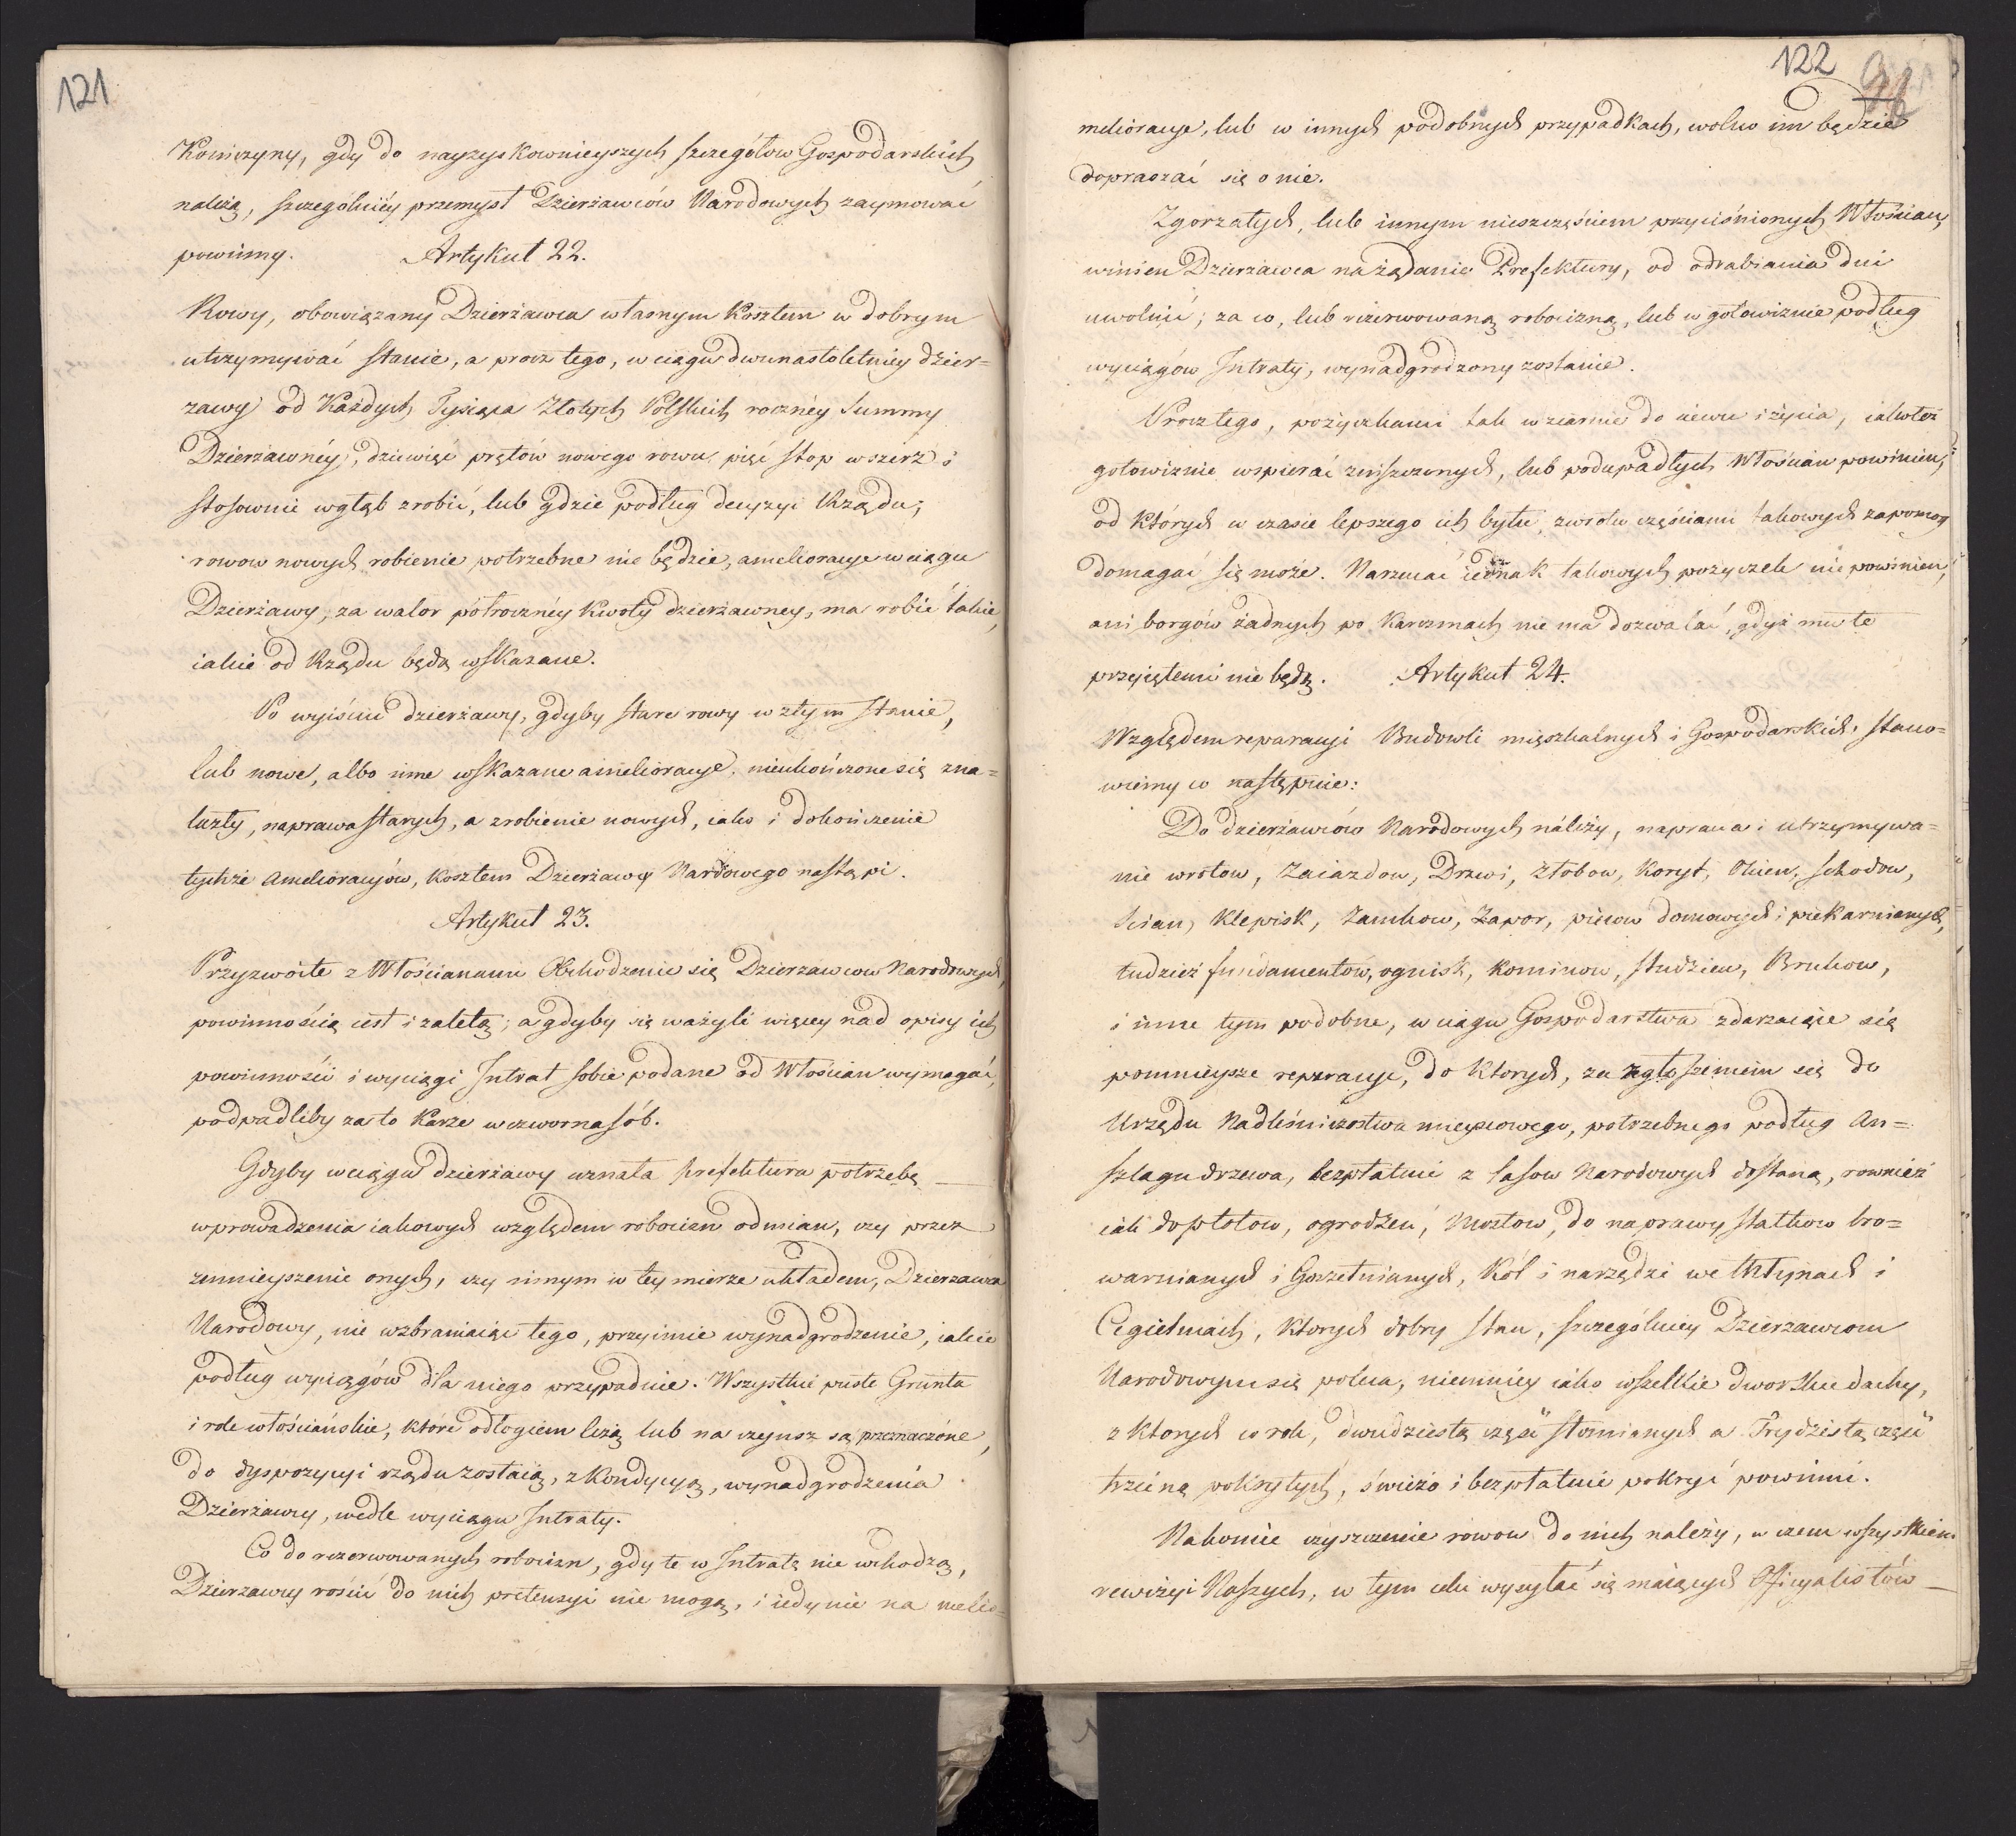 121
Koniczyny, gdy do nayzyskownieyszych szczegółow Gospodarskich
należą, szczególniéy przemysł Dzierżawców Narodowych zaymować
powinny. Artykuł 22.
Rowy, obowiązany Dzierżawca własnym Kosztem w dobrym
utrzymywać stanie, a procz tego, w ciągu dwunastoletniey dzier=
zawy od Każdych Tysiąca Złotych Polskich roczney Summy
Dzierżawnéy, dziewięć prętów nowego rowu, pięć stop wszerz i
stosownie wgłąb zrobić, lub gdzie podług decyzyi Rządu,
rowow nowych robienie potrzebne nie będzie, amelioracye w ciągu
Dzierżawy, za walor połroczney Kwoty dzierżawney, ma robić takie,
iakie od Rządu będą wskazane.
Po wyiściu dzierżawy, gdyby stare rowy w złym stanie,
lub nowe, albo inne wskazane amelioracye, nieukończone się zna=
lazły, naprawa starych, a zrobienie nowych, iako i dokończenie
tychże Amelioracyów, kosztem Dzierżawcy Narodowego nastąpi.
Artykuł 23.
Przyzwoite z Włościanami Obchodzenie się Dzierzawcow Narodowych,
powinnością iest i zaletą; a gdyby się ważyli więcey nad opisy ich
powinności i wyciągi Intrat sobie podane od Włościan wymagać,
podpadliby za to Karze wczwornasób.
Gdyby w ciągu dzierżawy uznała Prefektura potrzebę
wprowadzenia iakowych względem robocizn odmian, czy przez
zmnieyszenie onych, czy innym w tey mierze układem, Dzierzawca
Narodowy, nie wzbraniaiąc tego, przyimie wynadgrodzenie, iakie
podług wyciągów dla niego przypadnie. Wszystkie puste Grunta
i role włościańskie, które odłogiem leżą lub na czynsz są przeznaczone,
do dyspozycyi rządu zostaią, z Kondycyą, wynadgrodzenia
Dzierżawcy, wedle wyciągu Intraty.
Co do rezerwowanych robocizn, gdy te w Intratę nie wchodzą,
Dzierzawcy rościć do nich pretensyi nie mogą, i iedynie na melio=
122
melioracye, lub w innych podobnych przypadkach, wolno im będzie
dopraszać się o nie.
Zgorzałych, lub innym nieszczęściem przyciśnionych Włościan,
winien Dzierzawca na żądanie Prefektury, od odrabiania dni
uwolnić; za co, lub rezerwowaną robocizną, lub w gotowiznie podług
wyciągów Intraty, wynadgrodzony zostanie.
Procz tego, pożyczkami tak w ziarnie do siewu i życia, iakoteż
gotowiznie wspierać zniszczonych, lub podupadłych Włościan powinien,
od których w czasie lepszego ich bytu, zwrotu częściami takowych zapomog
domagać się może. Narzucać iednak takowych pożyczek nie powinien,
ani borgów żadnych po Karczmach nie ma dozwalać, gdyż mu te
przyiętemi nie będą. Artykuł 24.
Względem reparacyi Budowli mięszkalnych i Gospodarskich, stano=
wiemy co następuie:
Do dzierżawców Narodowych należy, naprawa i utrzymywa=
nie wrotow, Zaiazdow, Drzwi, żłobow, Koryt, Okien, schodow,
ścian, Klepisk, Zamkow, Zapor, piecow domowych i piekarnianych,
tudzież fundamentów, ognisk, kominow, studzien, Brukow,
i inne tym podobne, w ciągu Gospodarstwa zdarzaiące się
pomnieysze reparacye, do Ktorych, za zgłoszeniem się do
Urzędu Nadleśniczostwa mieyscowego, potrzebnego podług An=
szlagu drzewa, bezpłatnie z lasow Narodowych dostaną, rownież
iak do płotow, ogrodzeń, Mostow, do naprawy statkow bro=
warnianych i Gorzelnianych, Kół i narzędzi we Młynach i
Cegielniach, Ktorych dobry stan, szczególniey Dzierzawcom
Narodowym się poleca, niemniey iako wszelkie dworskie dachy,
z Ktorych co rok, dwudziestą część słomianych a Trzydziestą część
trzciną pokrytych, świeżo i bezpłatnie pokryć powinni.
Nakoniec czyszczenie rowow do nich należy, w czem wszystkiem
rewizyi Naszych, w tym celu wysyłać się maiących Officyalistów